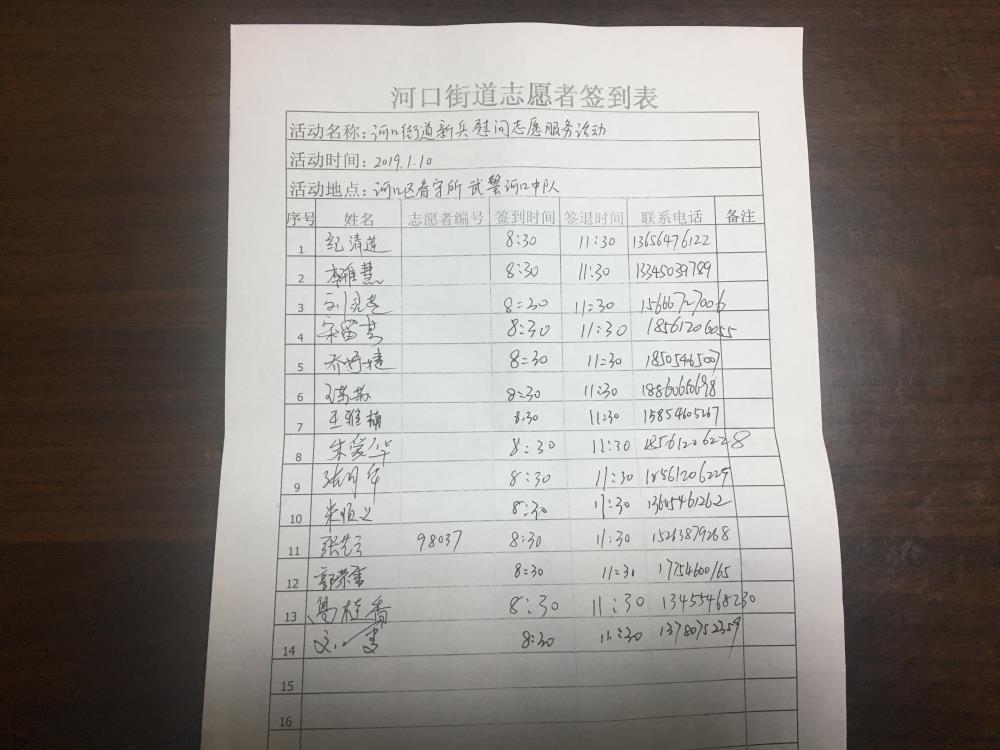 河口街道志愿者签到表
活动名称：河口街道新兵慰问志愿服务活动
活动时间：2019.1.10
活动地点：河口区看守所 武警河口中队
序号 姓名 志愿者编号 签到时间 签退时间 联系电话 备注
1 纪清莲 8:30 11:30 13656476122
2 李维慧 8:30 11:30 13345039789
3 8:30 11:30
4 宋留芳 8:30 11:30 18561206055
5 乔婷婕 8:30 11:30 18505465007
6 王苏苏 8:30 11:30 18860660698
7 王雅楠 8:30 11:30 15854605267
8 朱爱华 8:30 11:30 18561206228
9 张月华 8:30 11:30 18561206229
10 朱顺义 8:30 11:30 13605461262
11 98037 8:30 11:30 15263879268
12 郭荣 8:30 11:31 17754600165
13 葛桂香 8:30 11:30 13455468230
14 8:30 11:30 13780752359
15
16